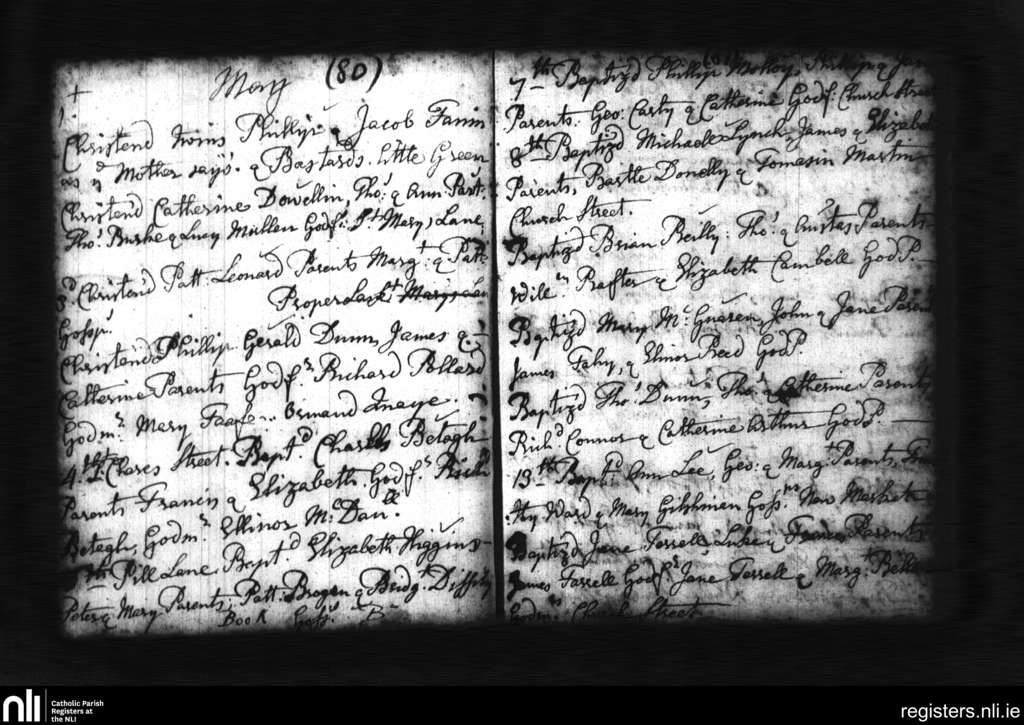 May (80)
Christend twins Phillip & Jacob Fanin
as ye Mother says. & Bastards. Little Green
Christend Catherine Dowellin, Tho: & Ann Part:
Tho: Burke & Lucy Mullen Godf: St Mary, Lane
3d Christend Patt: Leonard Parents Margt: & Patt
Proper Lane
Gossp:
Christend Phillip Gerald Dunn, James &
Catherine Parents Godfr. Richard Pollard
Godmr. Mary Ormand
4. Street. Baptd Charles Betagh
Parents Francis & Elizabeth. Godfr. Rich
Betagh, Godmr. Ellinor Mc
Pill Lane Baptd Elizabeth Higgins
Peter & Mary Parents, Patt: Brogen & Bridgt
Book Gossp. B
7th Baptizd Phillip Molloy, Phillip & Jane
Parents. Geo: Carty & Catherine Godf: Church Street
8th Baptizd Michaell Lynch, James & Elizabet
Parents, Bartle Donelly & Tomasin Martin
Church Street.
Baptizd Brian Reilly. Tho: & Parents
Willm Rafter & Elizabeth Cambell GodP.
Baptizd Mary Mc John & Jane Parents
James Fahy, & Elinor Reed GodP.
Baptizd Tho: Dunn, Tho: & Catherine Parents
Richd Connor & Catherine Arthur GodP.
13th Baptd Ann Lee, Geo: & Margt Parents,
Ward & Mary Gilshinan Gossps New Market
Baptizd Jane Farrell Luke & Parents
James Farrell Godfr Jane Farrell & Margt:
Godmrs Church Street
nli
Catholic Parish
Registers at
the NLI
registers.nli.ie